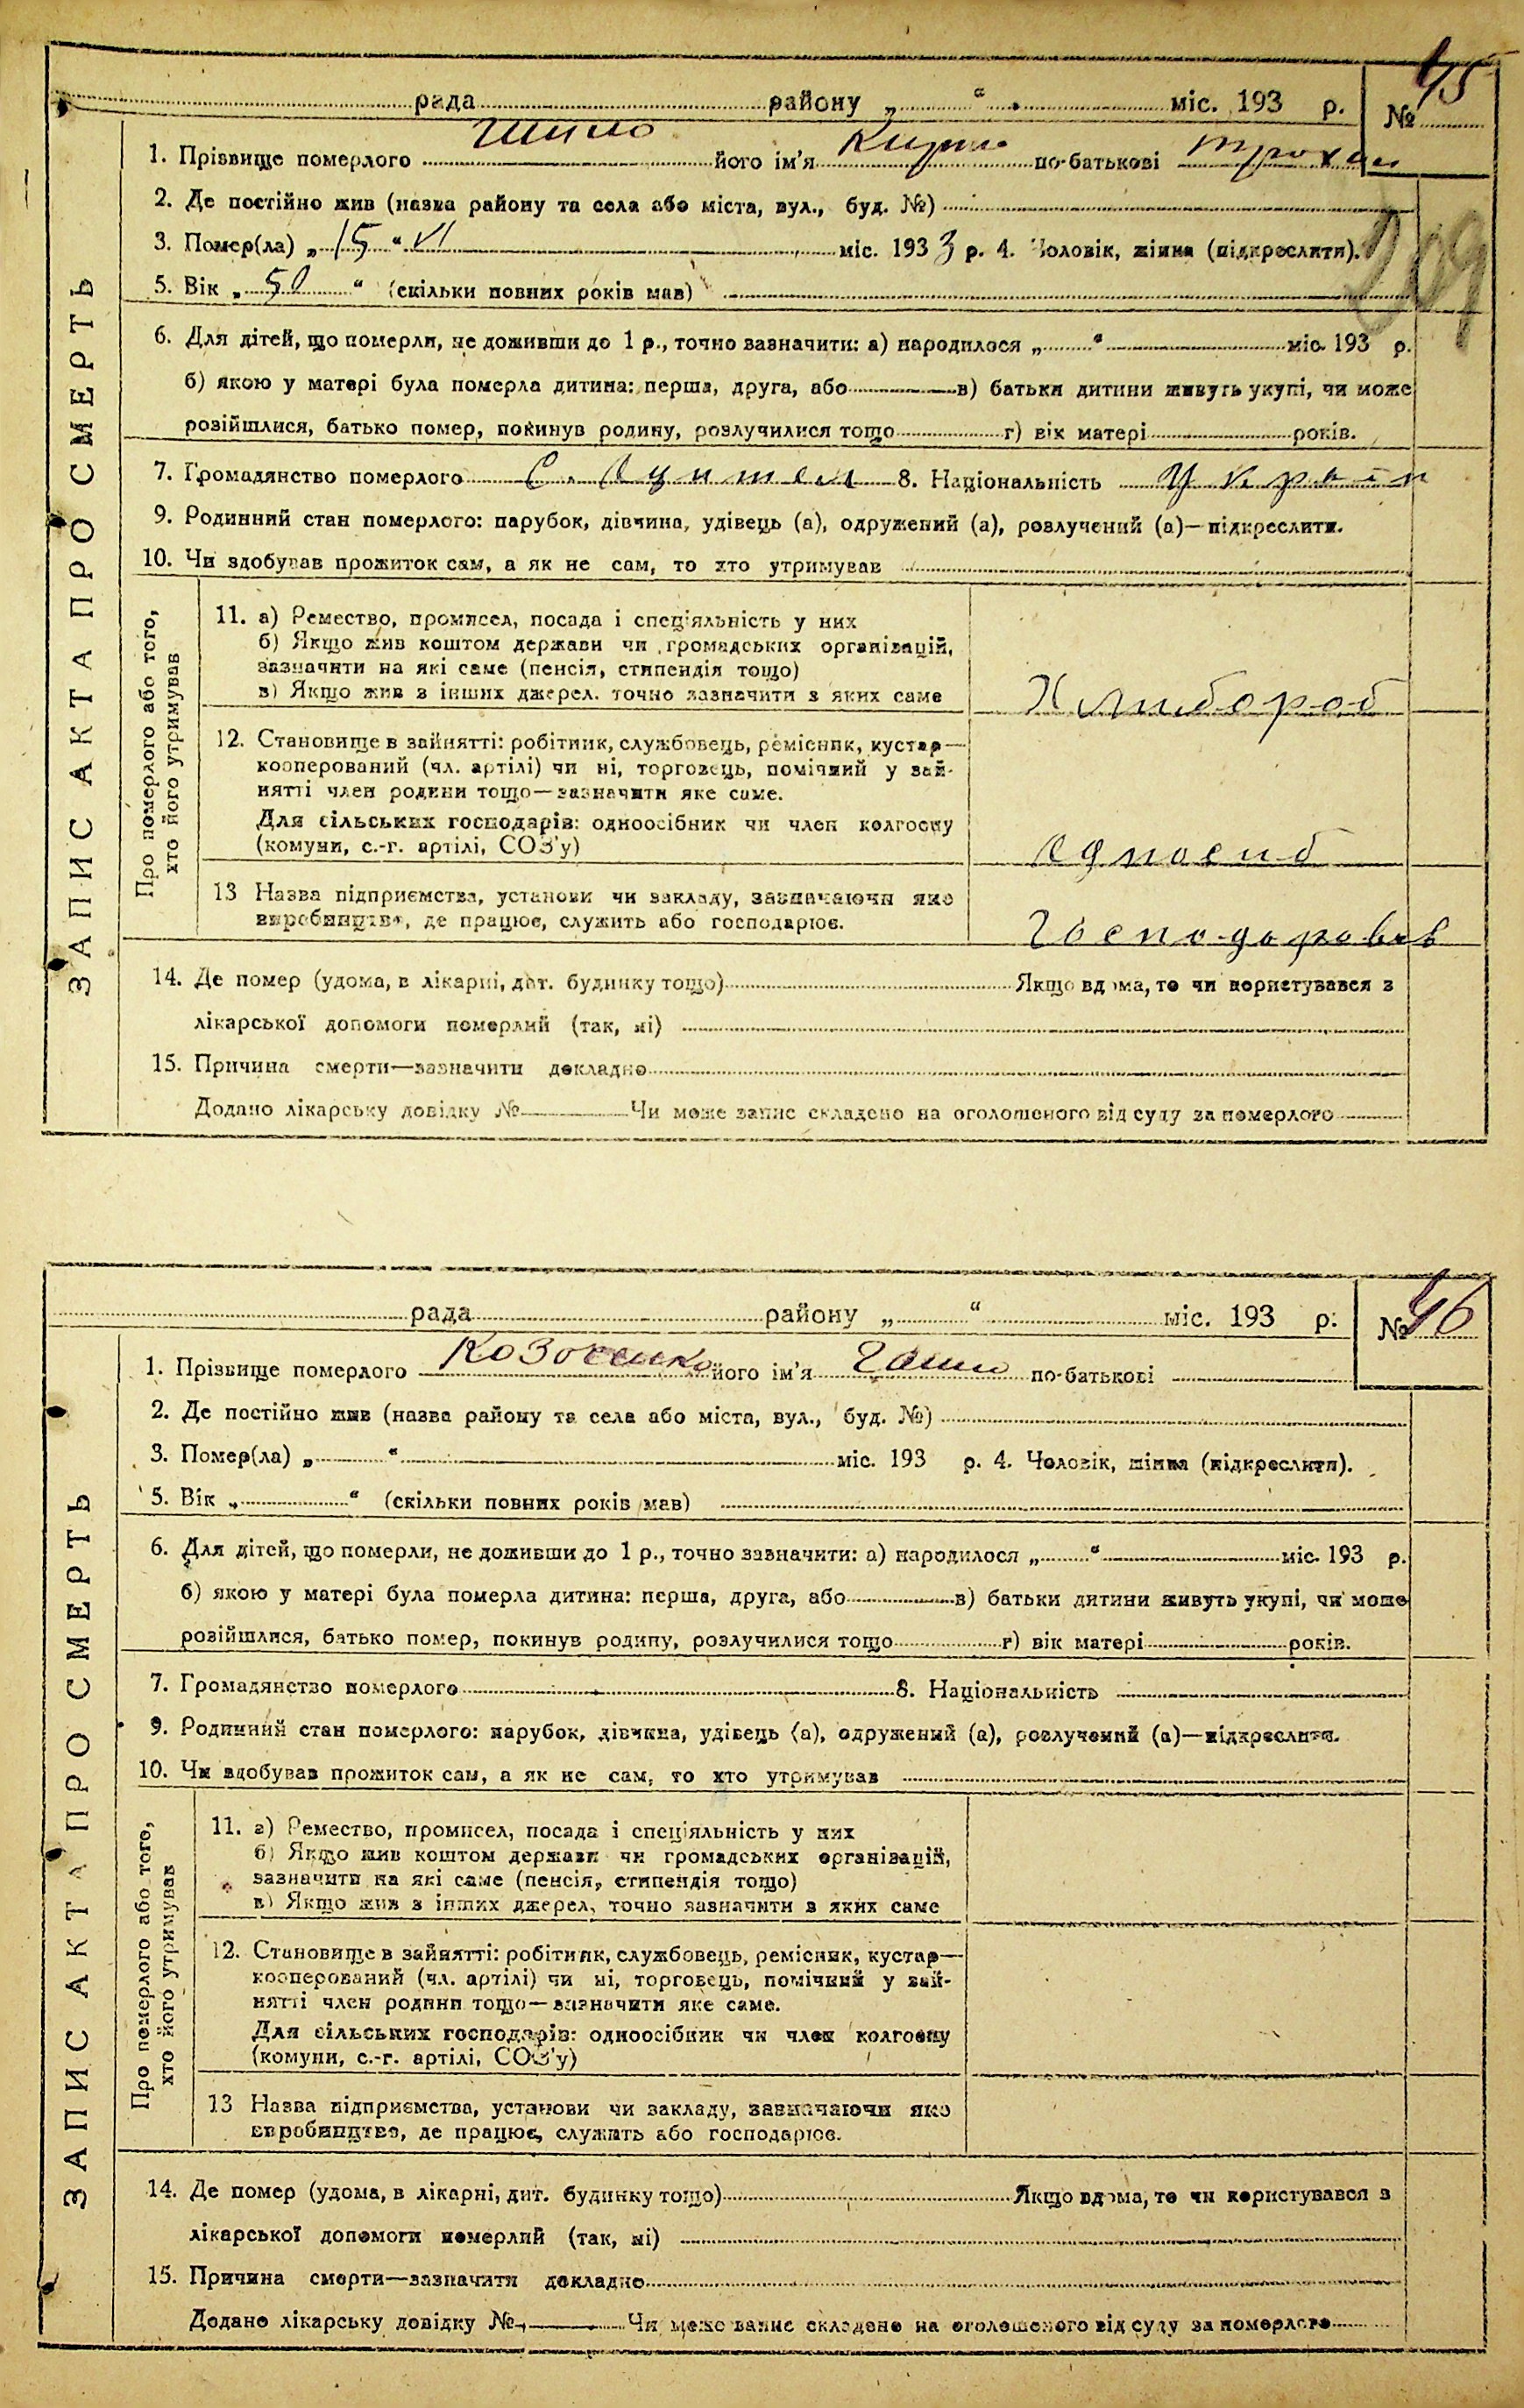 рада району „ “ міс. 193 р. № 45
1. Прізвище померлого Шило його ім'я Кирило по-батькові Трохим
2. Де постійно жив (назва району та села або міста, вул., буд. №)
3. Помер(ла) „ 15 “ VI міс. 193 3 р. 4. Чоловік, жінка (підкреслити).
209
5. Вік „ 50 “ (скільки повних років мав)
6. Для дітей, що померли, не доживши до 1 р., точно зазначити: а) народилося „ “ міс. 193 р.
б) якою у матері була померла дитина: перша, друга, або в) батьки дитини живуть укупі, чи може
розійшлися, батько помер, покинув родину, розлучилися тощо г) вік матері років.
7. Громадянство померлого 8. Національність Україн
9. Родинний стан померлого: парубок, дівчина, удівець (а), одружений (а), розлучений (а)—підкреслити.
10. Чи здобував прожиток сам, а як не сам, то хто утримував
ЗАПИС АКТА ПРО СМЕРТЬ
Про померлого або того,
хто його утримував
11. а) Ремество, промисел, посада і спеціяльність у них
б) Якщо жив коштом держави чи громадських організацій,
зазначити на які саме (пенсія, стипендія тощо)
в) Якщо жив з інших джерел, точно зазначити з яких саме
Хлибороб
12. Становище в зайнятті: робітник, службовець, ремісник, кустар—
кооперований (чл. артілі) чи ні, торговець, помічний у зай-
нятті член родини тощо—зазначити яке саме.
Для сільських господарів: одноосібник чи член колгоспу
(комуни, с.-г. артілі, СОЗ'у)
Одноосиб
13 Назва підприємства, установи чи закладу, зазначаючи яке
виробництво, де працює, служить або господарює.
Господарював
14. Де помер (удома, в лікарні, дит. будинку тощо) Якщо вдома, то чи користувався з
лікарської допомоги померлий (так, ні)
15. Причина смерти—зазначити докладно
Додано лікарську довідку № Чи може запис складено на оголошеного від суду за померлого
рада району „ “ міс. 193 р. № 46
1. Прізвище померлого його ім'я по-батькові
2. Де постійно жив (назва району та села або міста, вул., буд. №)
3. Помер(ла) „ “ міс. 193 р. 4. Чоловік, жінка (підкреслити).
5. Вік „ “ (скільки повних років мав)
6. Для дітей, що померли, не доживши до 1 р., точно зазначити: а) народилося „ “ міс. 193 р.
б) якою у матері була померла дитина: перша, друга, або в) батьки дитини живуть укупі, чи може
розійшлися, батько помер, покинув родину, розлучилися тощо г) вік матері років.
7. Громадянство померлого 8. Національність
9. Родинний стан померлого: парубок, дівчина, удівець (а), одружений (а), розлучений (а)—підкреслити.
10. Чи здобував прожиток сам, а як не сам, то хто утримував
ЗАПИС АКТА ПРО СМЕРТЬ
Про померлого або того,
хто його утримував
11. а) Ремество, промисел, посада і спеціяльність у них
б) Якщо жив коштом держави чи громадських організацій,
зазначити на які саме (пенсія, стипендія тощо)
в) Якщо жив з інших джерел, точно зазначити з яких саме
12. Становище в зайнятті: робітник, службовець, ремісник, кустар—
кооперований (чл. артілі) чи ні, торговець, помічний у зай-
нятті член родини тощо—зазначити яке саме.
Для сільських господарів: одноосібник чи член колгоспу
(комуни, с.-г. артілі, СОЗ'у)
13 Назва підприємства, установи чи закладу, зазначаючи яке
виробництво, де працює, служить або господарює.
14. Де помер (удома, в лікарні, дит. будинку тощо) Якщо вдома, то чи користувався з
лікарської допомоги померлий (так, ні)
15. Причина смерти—зазначити докладно
Додано лікарську довідку № Чи може запис складено на оголошеного від суду за померлого